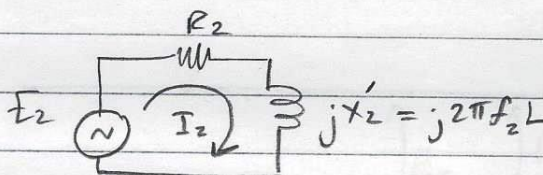 R2
E2 ~ I2 jX2' = j2πf2L